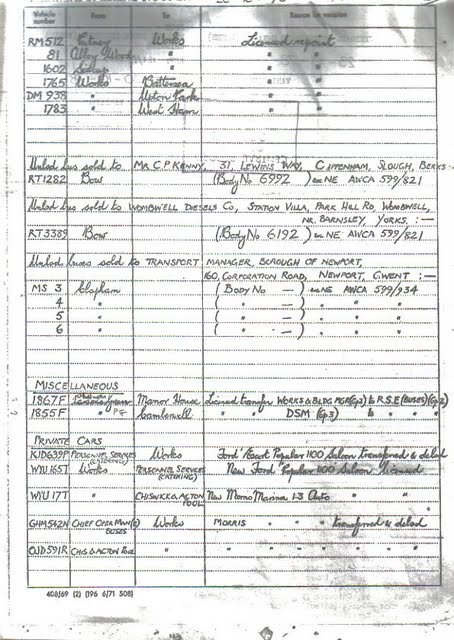 Vehicle number From To Reason for variation
RM 512 Putney Works Licensed repaint
81 " " "
1602 Sidcup " " "
1765 Works Battersea " "
DM 938 " Upton Park " "
1783 " West Ham " "
Unlicd bus sold to MR C.P. KENNY, 31, LEWINS WAY, CIPPENHAM, SLOUGH, BERKS
RT1282 Bow (Body No 6992) NE AWCA 599/821
Unlicd bus sold to WOMBWELL DIESELS CO, STATION VILLA, PARK HILL RD, WOMBWELL,
NR. BARNSLEY, YORKS. :—
RT3389 Bow (Body No 6192) NE AWCA 599/821
Unlicd buses sold to TRANSPORT MANAGER, BOROUGH OF NEWPORT,
160, CORPORATION ROAD, NEWPORT, GWENT :—
MS 3 Clapham (BODY NO —) NE AWCA 599/934
4 " ( " " —) " " "
5 " ( " " —) " " "
6 " ( " " —) " " "
MISCELLANEOUS
1867F Manor House Licensed transfer WORKS & BLDG MGR (Gp3) to R.S.E (BUSES) (Gp2)
1855F Camberwell " " DSM (Gp3) to " "
PRIVATE CARS
KJD639P PERSONNEL SERVICES (CATERING) Works Ford Escort Popular 1100 Saloon transferred & delcd
WYU165T Works PERSONNEL SERVICES (CATERING) New Ford Popular 1100 Saloon licensed
WYU 17T " CHISWICK & ACTON POOL New Morris Marina 1·3 Auto "
GHM562N CHIEF OPER MAN(R) BUSES Works MORRIS " " transferred & delcd
OJD591R CHIS & ACTON POOL " " " " " " "
408/69 (2) (196 6/71 508)